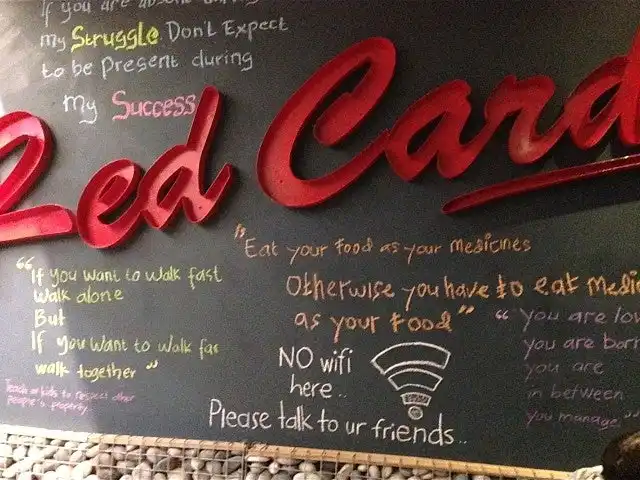 If you are absent during
my Struggle Don't Expect
to be Present during
my Success
Red Card
"Eat your Food as your medicines
Otherwise you have to eat medi
as your Food"
"If you want to walk fast
Walk alone
But
If you want to walk far
walk together"
Teach ur kids to respect other
people's property
NO wifi
here..
Please talk to ur friends..
"you are
you are
you are
in between
you manage."